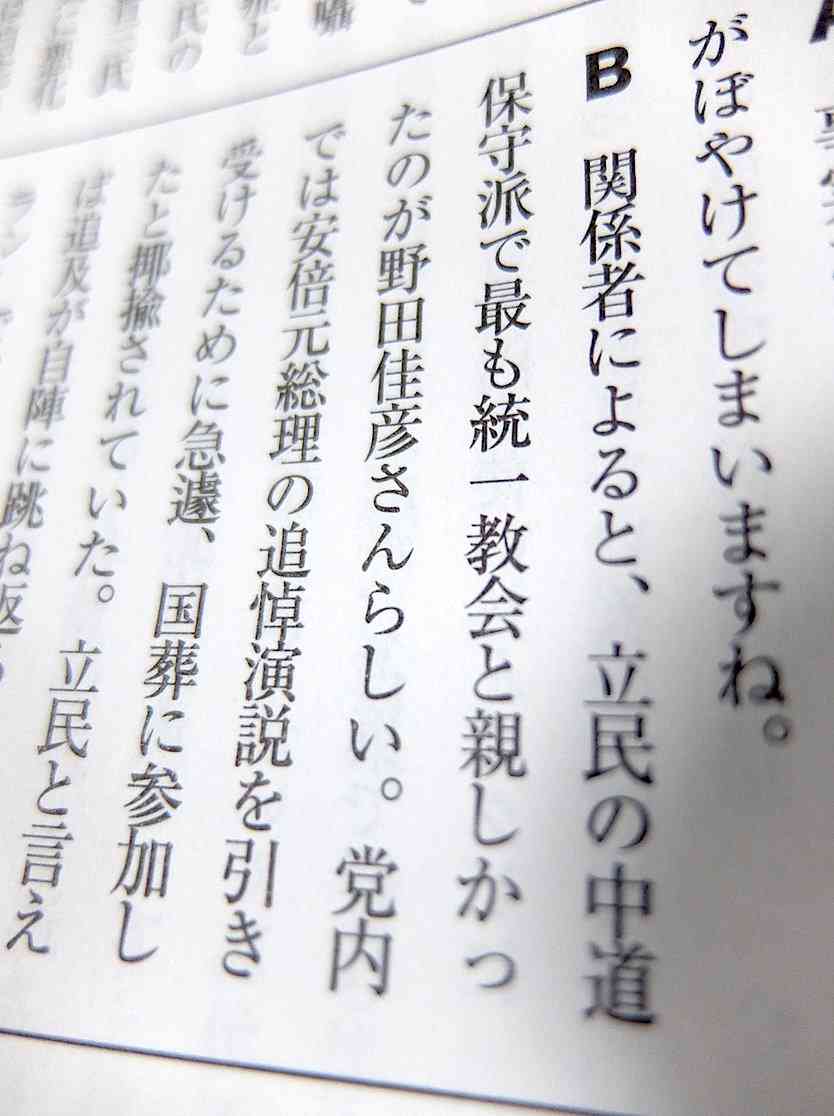 がぼやけてしまいますね。
B　関係者によると、立民の中道
保守派で最も統一教会と親しかっ
たのが野田佳彦さんらしい。党内
では安倍元総理の追悼演説を引き
受けるために急遽、国葬に参加し
たと揶揄されていた。立民と言え
ば追及が自陣に跳ね返